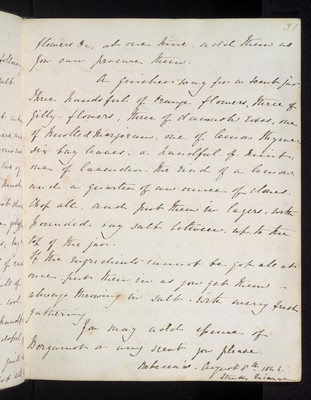 31
flowers &c, at one time. add them as
you can procure them.
A quicker way for a scent jar
Three handsful of orange flowers, three of
Gilly-flowers, three of damask roses, one
of knotted Marjoram, one of lemon thyme,
six bay leaves. a handful of
one of lavender. the rind of a lemon,
and a quarter of an ounce of cloves.
Chop all, and put them in layers, with
pounded bay salt between, up to the
top of the jar.
If the ingredients cannot be got all at
once, put them in as you get them -
always throwing in salt, with every fresh
gathering
You may add essence of
Bergamot or any scent you please.
August 8th 1846.